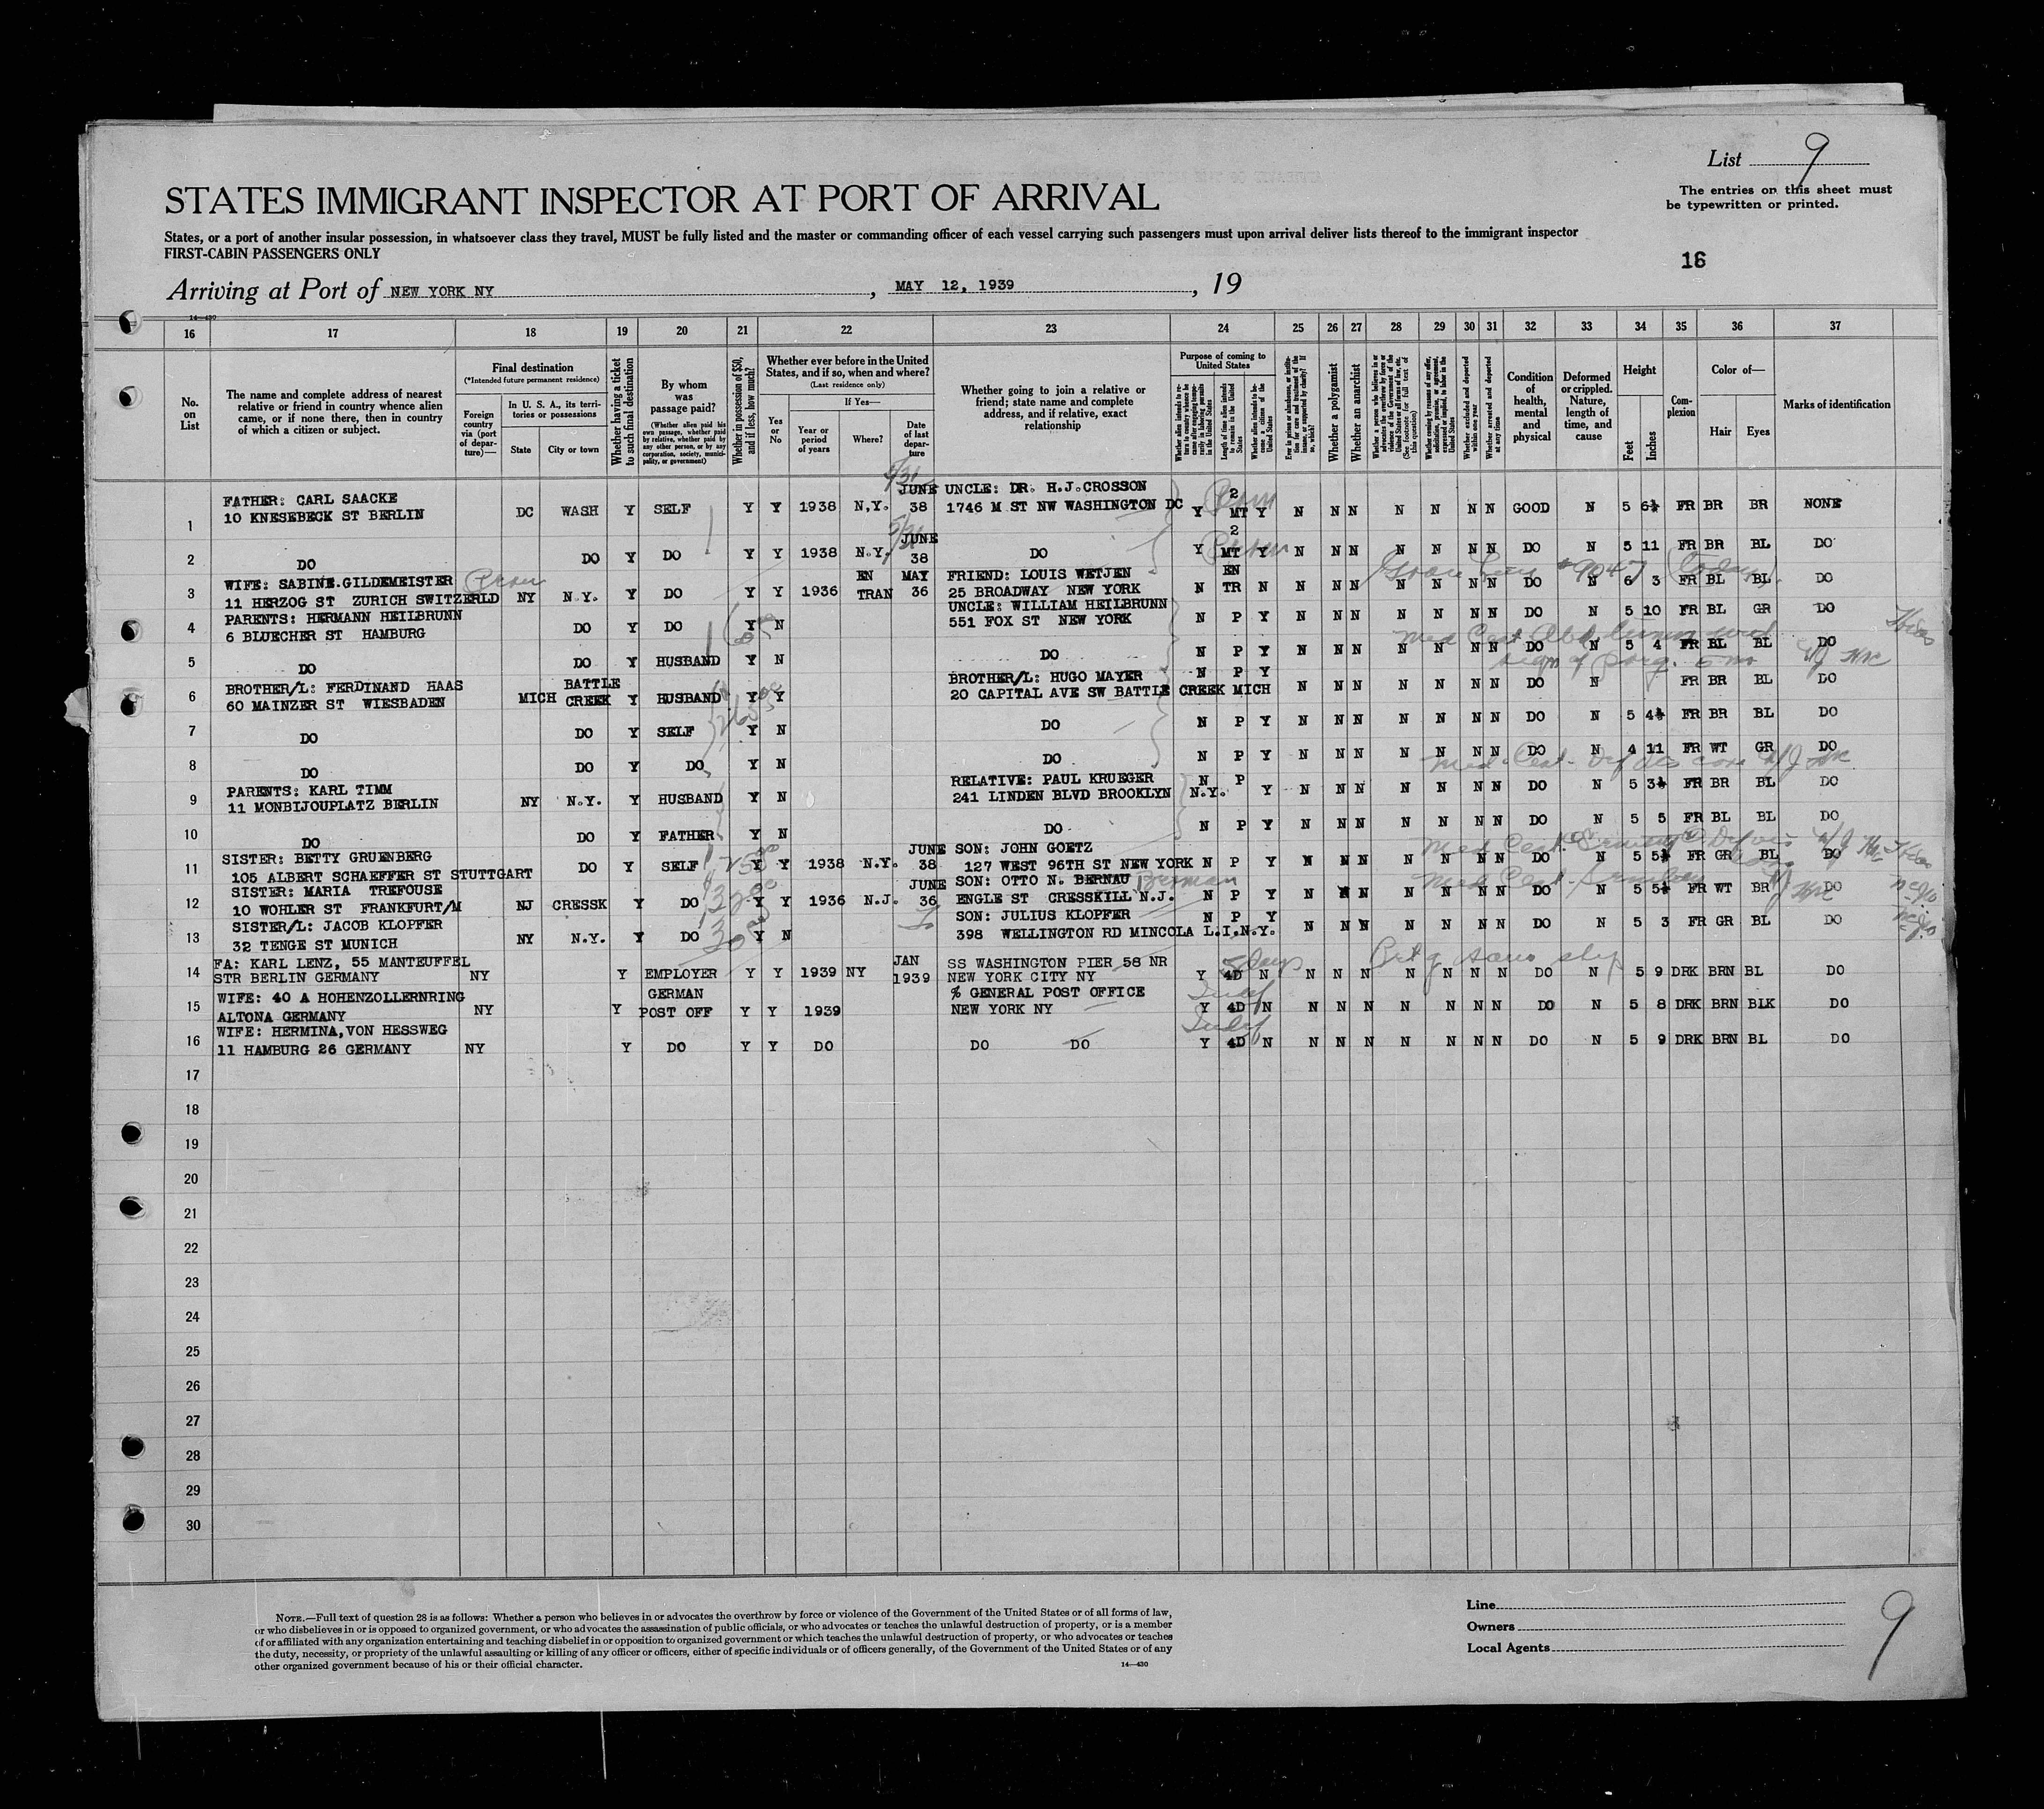 List 9
The entries on this sheet must
be typewritten or printed.
STATES IMMIGRANT INSPECTOR AT PORT OF ARRIVAL
States, or a port of another insular possession, in whatsoever class they travel, MUST be fully listed and the master or commanding officer of each vessel carrying such passengers must upon arrival deliver lists thereof to the immigrant inspector
FIRST-CABIN PASSENGERS ONLY
16
Arriving at Port of NEW YORK NY, MAY 12, 1939, 19
14—430
16 17 18 19 20 21 22 23 24 25 26 27 28 29 30 31 32 33 34 35 36 37
No. on List
The name and complete address of nearest relative or friend in country whence alien came, or if none there, then in country of which a citizen or subject.
Final destination
(*Intended future permanent residence)
Foreign country via (port of departure)—
In U. S. A., its territories or possessions
State
City or town
Whether having a ticket to such final destination
By whom was passage paid?
(Whether alien paid his own passage, whether paid by relative, whether paid by any other person, or by any corporation, society, municipality, or government)
Whether in possession of $50, and if less, how much?
Whether ever before in the United States, and if so, when and where?
(Last residence only)
Yes or No
If Yes—
Year or period of years
Where?
Date of last departure
Whether going to join a relative or friend; state name and complete address, and if relative, exact relationship
Purpose of coming to United States
Length of time alien intends to remain in the United States
Whether alien intends to become a citizen of the United States
Whether a polygamist
Whether an anarchist
Whether excluded and deported within one year
Whether arrested and deported at any time
Condition of health, mental and physical
Deformed or crippled. Nature, length of time, and cause
Height
Feet
Inches
Complexion
Color of—
Hair
Eyes
Marks of identification
5/31
FATHER: CARL SAACKE JUNE UNCLE: DR. H.J.CROSSON 2
1 10 KNESEBECK ST BERLIN DC WASH Y SELF Y Y 1938 N.Y. 38 1746 M ST NW WASHINGTON DC Y MT Y N N N N N N N GOOD N 5 6½ FR BR BR NONE
JUNE 2
2 DO DO Y DO Y Y 1938 N.Y. 38 DO Y MT Y N N N N N N N DO N 5 11 FR BR BL DO
WIFE: SABINE.GILDEMEISTER EN MAY FRIEND: LOUIS WETJEN EN
3 11 HERZOG ST ZURICH SWITZERLD NY N.Y. Y DO Y Y 1936 TRAN 36 25 BROADWAY NEW YORK N TR N N N N N N N N DO N 6 3 FR BL BL DO
PARENTS: HERMANN HEILBRUNN UNCLE: WILLIAM HEILBRUNN
4 6 BLUECHER ST HAMBURG DO Y DO Y N 551 FOX ST NEW YORK N P Y N N N N N N N DO N 5 10 FR BL GR DO
5 DO DO Y HUSBAND Y N DO N P Y N N N N N N N DO N 5 4 FR BL BL DO
BROTHER/L: FERDINAND HAAS BATTLE BROTHER/L: HUGO MAYER N P Y
6 60 MAINZER ST WIESBADEN MICH CREEK Y HUSBAND Y Y 20 CAPITAL AVE SW BATTLE CREEK MICH N N N N N N N DO N FR BR BL DO
7 DO DO Y SELF Y N DO N P Y N N N N N N N DO N 5 4½ FR BR BL DO
8 DO DO Y DO Y N DO N P Y N N N N N N N DO N 4 11 FR WT GR DO
PARENTS: KARL TIMM RELATIVE: PAUL KRUEGER N P
9 11 MONBIJOUPLATZ BERLIN NY N.Y. Y HUSBAND Y N 241 LINDEN BLVD BROOKLYN N.Y. Y N N N N N N N DO N 5 3½ FR BR BL DO
10 DO DO Y FATHER Y N DO N P Y N N N N N N N DO N 5 5 FR BL BL DO
SISTER: BETTY GRUENBERG JUNE SON: JOHN GOETZ
11 105 ALBERT SCHAEFFER ST STUTTGART DO Y SELF Y Y 1938 N.Y. 38 127 WEST 96TH ST NEW YORK N P Y N N N N N N N DO N 5 5½ FR GR BL DO
SISTER: MARIA TREFOUSE JUNE SON: OTTO N. BERNAU Berman
12 10 WOHLER ST FRANKFURT/M NJ CRESSK Y DO Y Y 1936 N.J. 36 ENGLE ST CRESSKILL N.J. N P Y N N N N N N N DO N 5 5½ FR WT BR DO
SISTER/L: JACOB KLOPFER SON: JULIUS KLOPFER N P Y
13 32 TENGE ST MUNICH NY N.Y. Y DO Y N 398 WELLINGTON RD MINCOLA L.I.N.Y. N N N N N N N DO N 5 3 FR GR BL DO
FA: KARL LENZ, 55 MANTEUFFEL JAN SS WASHINGTON PIER 58 NR 5 days
14 STR BERLIN GERMANY NY Y EMPLOYER Y Y 1939 NY 1939 NEW YORK CITY NY Y 4D N N N N N N N N DO N 5 9 DRK BRN BL DO
WIFE: 40 A HOHENZOLLERNRING GERMAN % GENERAL POST OFFICE
15 ALTONA GERMANY NY Y POST OFF Y Y 1939 NEW YORK NY Y 4D N N N N N N N N DO N 5 8 DRK BRN BLK DO
WIFE: HERMINA,VON HESSWEG
16 11 HAMBURG 26 GERMANY NY Y DO Y Y DO DO DO Y 4D N N N N N N N N DO N 5 9 DRK BRN BL DO
17
18
19
20
21
22
23
24
25
26
27
28
29
30
NOTE.—Full text of question 28 is as follows: Whether a person who believes in or advocates the overthrow by force or violence of the Government of the United States or of all forms of law,
or who disbelieves in or is opposed to organized government, or who advocates the assassination of public officials, or who advocates or teaches the unlawful destruction of property, or is a member
of or affiliated with any organization entertaining and teaching disbelief in or opposition to organized government or which teaches the unlawful destruction of property, or who advocates or teaches
the duty, necessity, or propriety of the unlawful assaulting or killing of any officer or officers, either of specific individuals or of officers generally, of the Government of the United States or of any
other organized government because of his or their official character.
14—430
Line
Owners
Local Agents
9